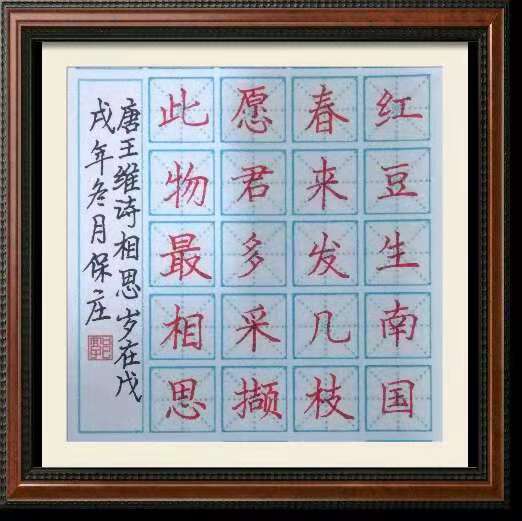 红豆生南国
春来发几枝
愿君多采撷
此物最相思
唐王维诗相思岁在戊
戌年冬月保庄